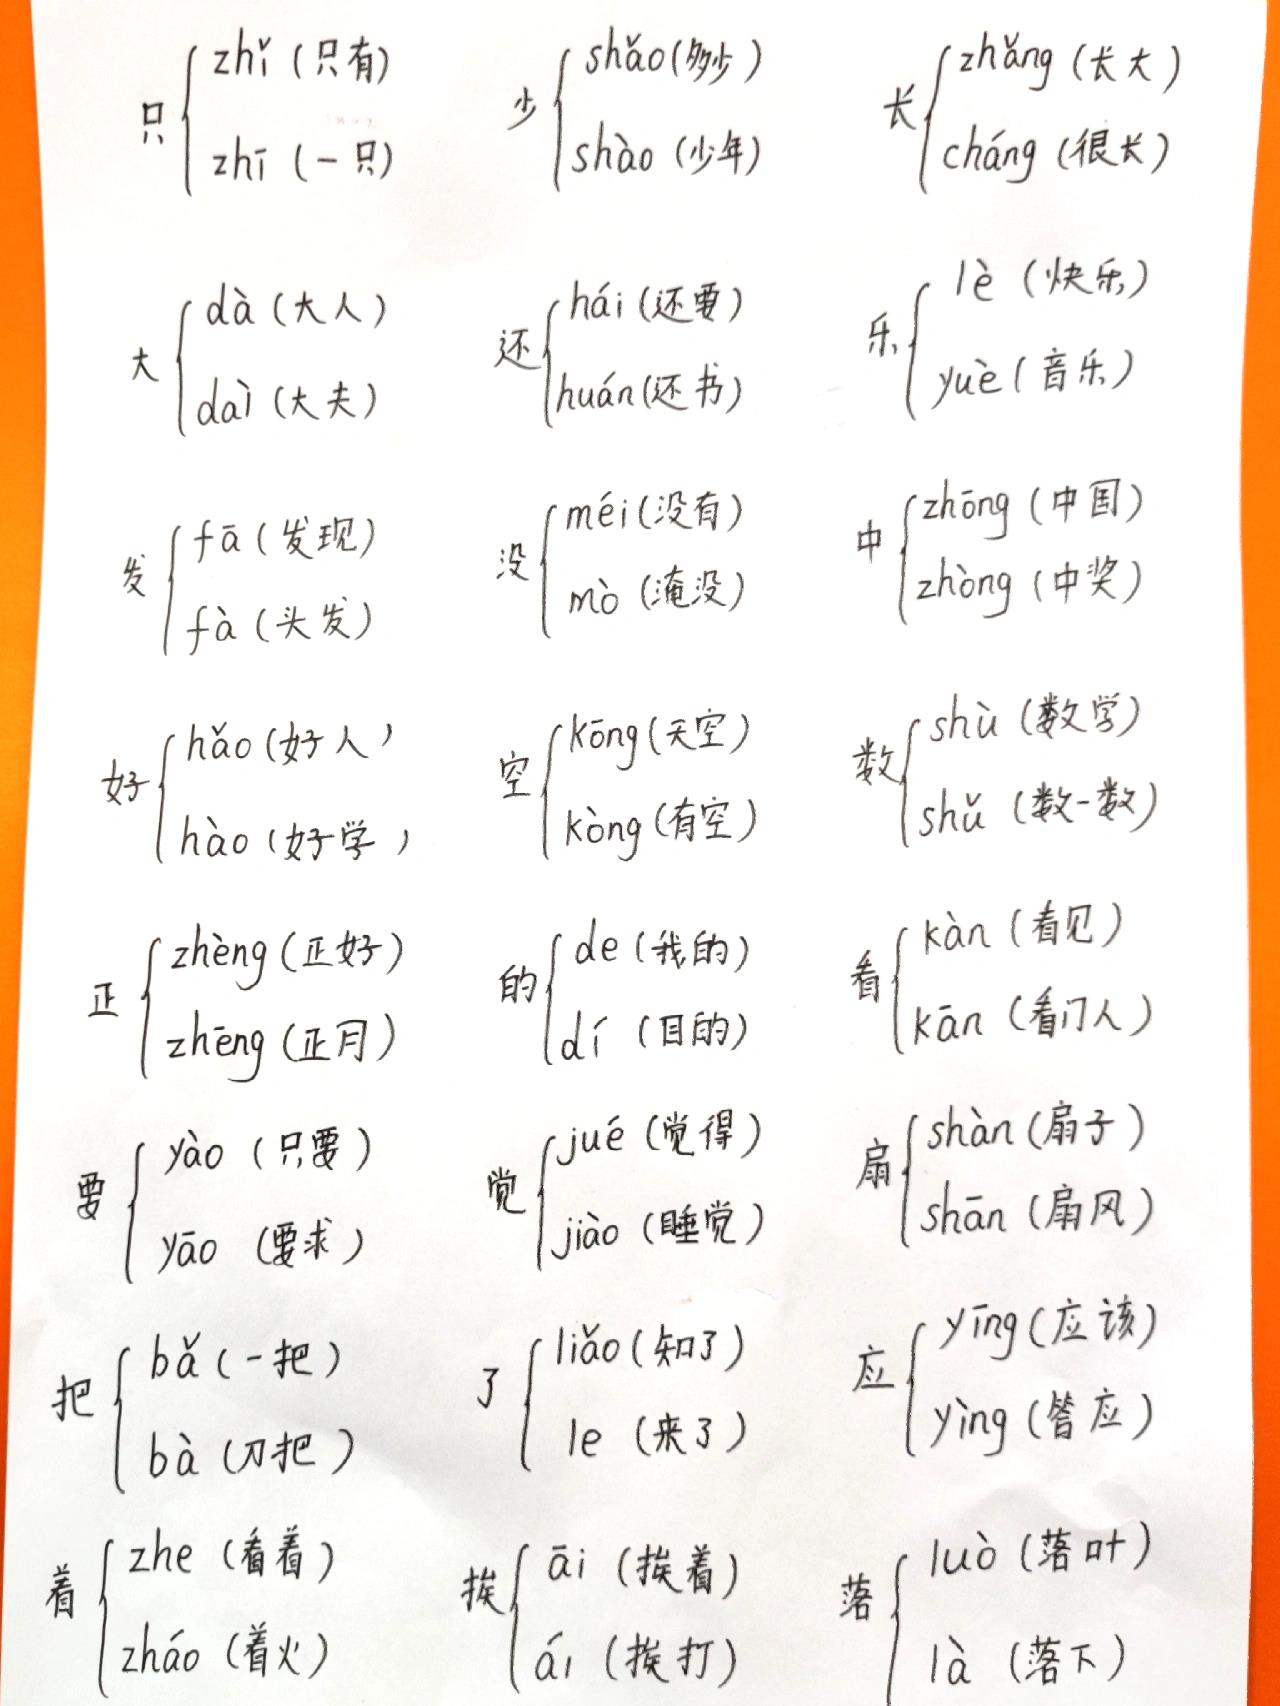 只 zhǐ (只有) zhī (一只)
少 shǎo (多少) shào (少年)
长 zhǎng (长大) cháng (很长)
大 dà (大人) daì (大夫)
还 hái (还要) huán (还书)
乐 lè (快乐) yuè (音乐)
发 fā (发现) fà (头发)
没 méi (没有) mò (淹没)
中 zhōng (中国) zhòng (中奖)
好 hǎo (好人) hào (好学)
空 kōng (天空) kòng (有空)
数 shù (数学) shǔ (数一数)
正 zhèng (正好) zhēng (正月)
的 de (我的) dí (目的)
看 kàn (看见) kān (看门人)
要 yào (只要) yāo (要求)
觉 jué (觉得) jiào (睡觉)
扇 shàn (扇子) shān (扇风)
把 bǎ (一把) bà (刀把)
了 liǎo (知了) le (来了)
应 yīng (应该) yìng (答应)
着 zhe (看着) zháo (着火)
挨 āi (挨着) ái (挨打)
落 luò (落叶) là (落下)